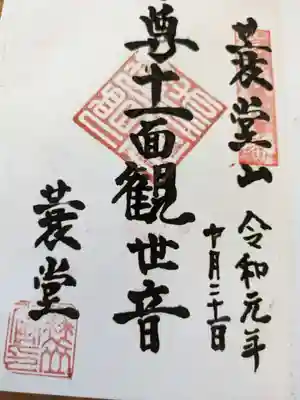 蓑堂山
令和元年
十月二十一日
尊十一面観世音
蓑堂